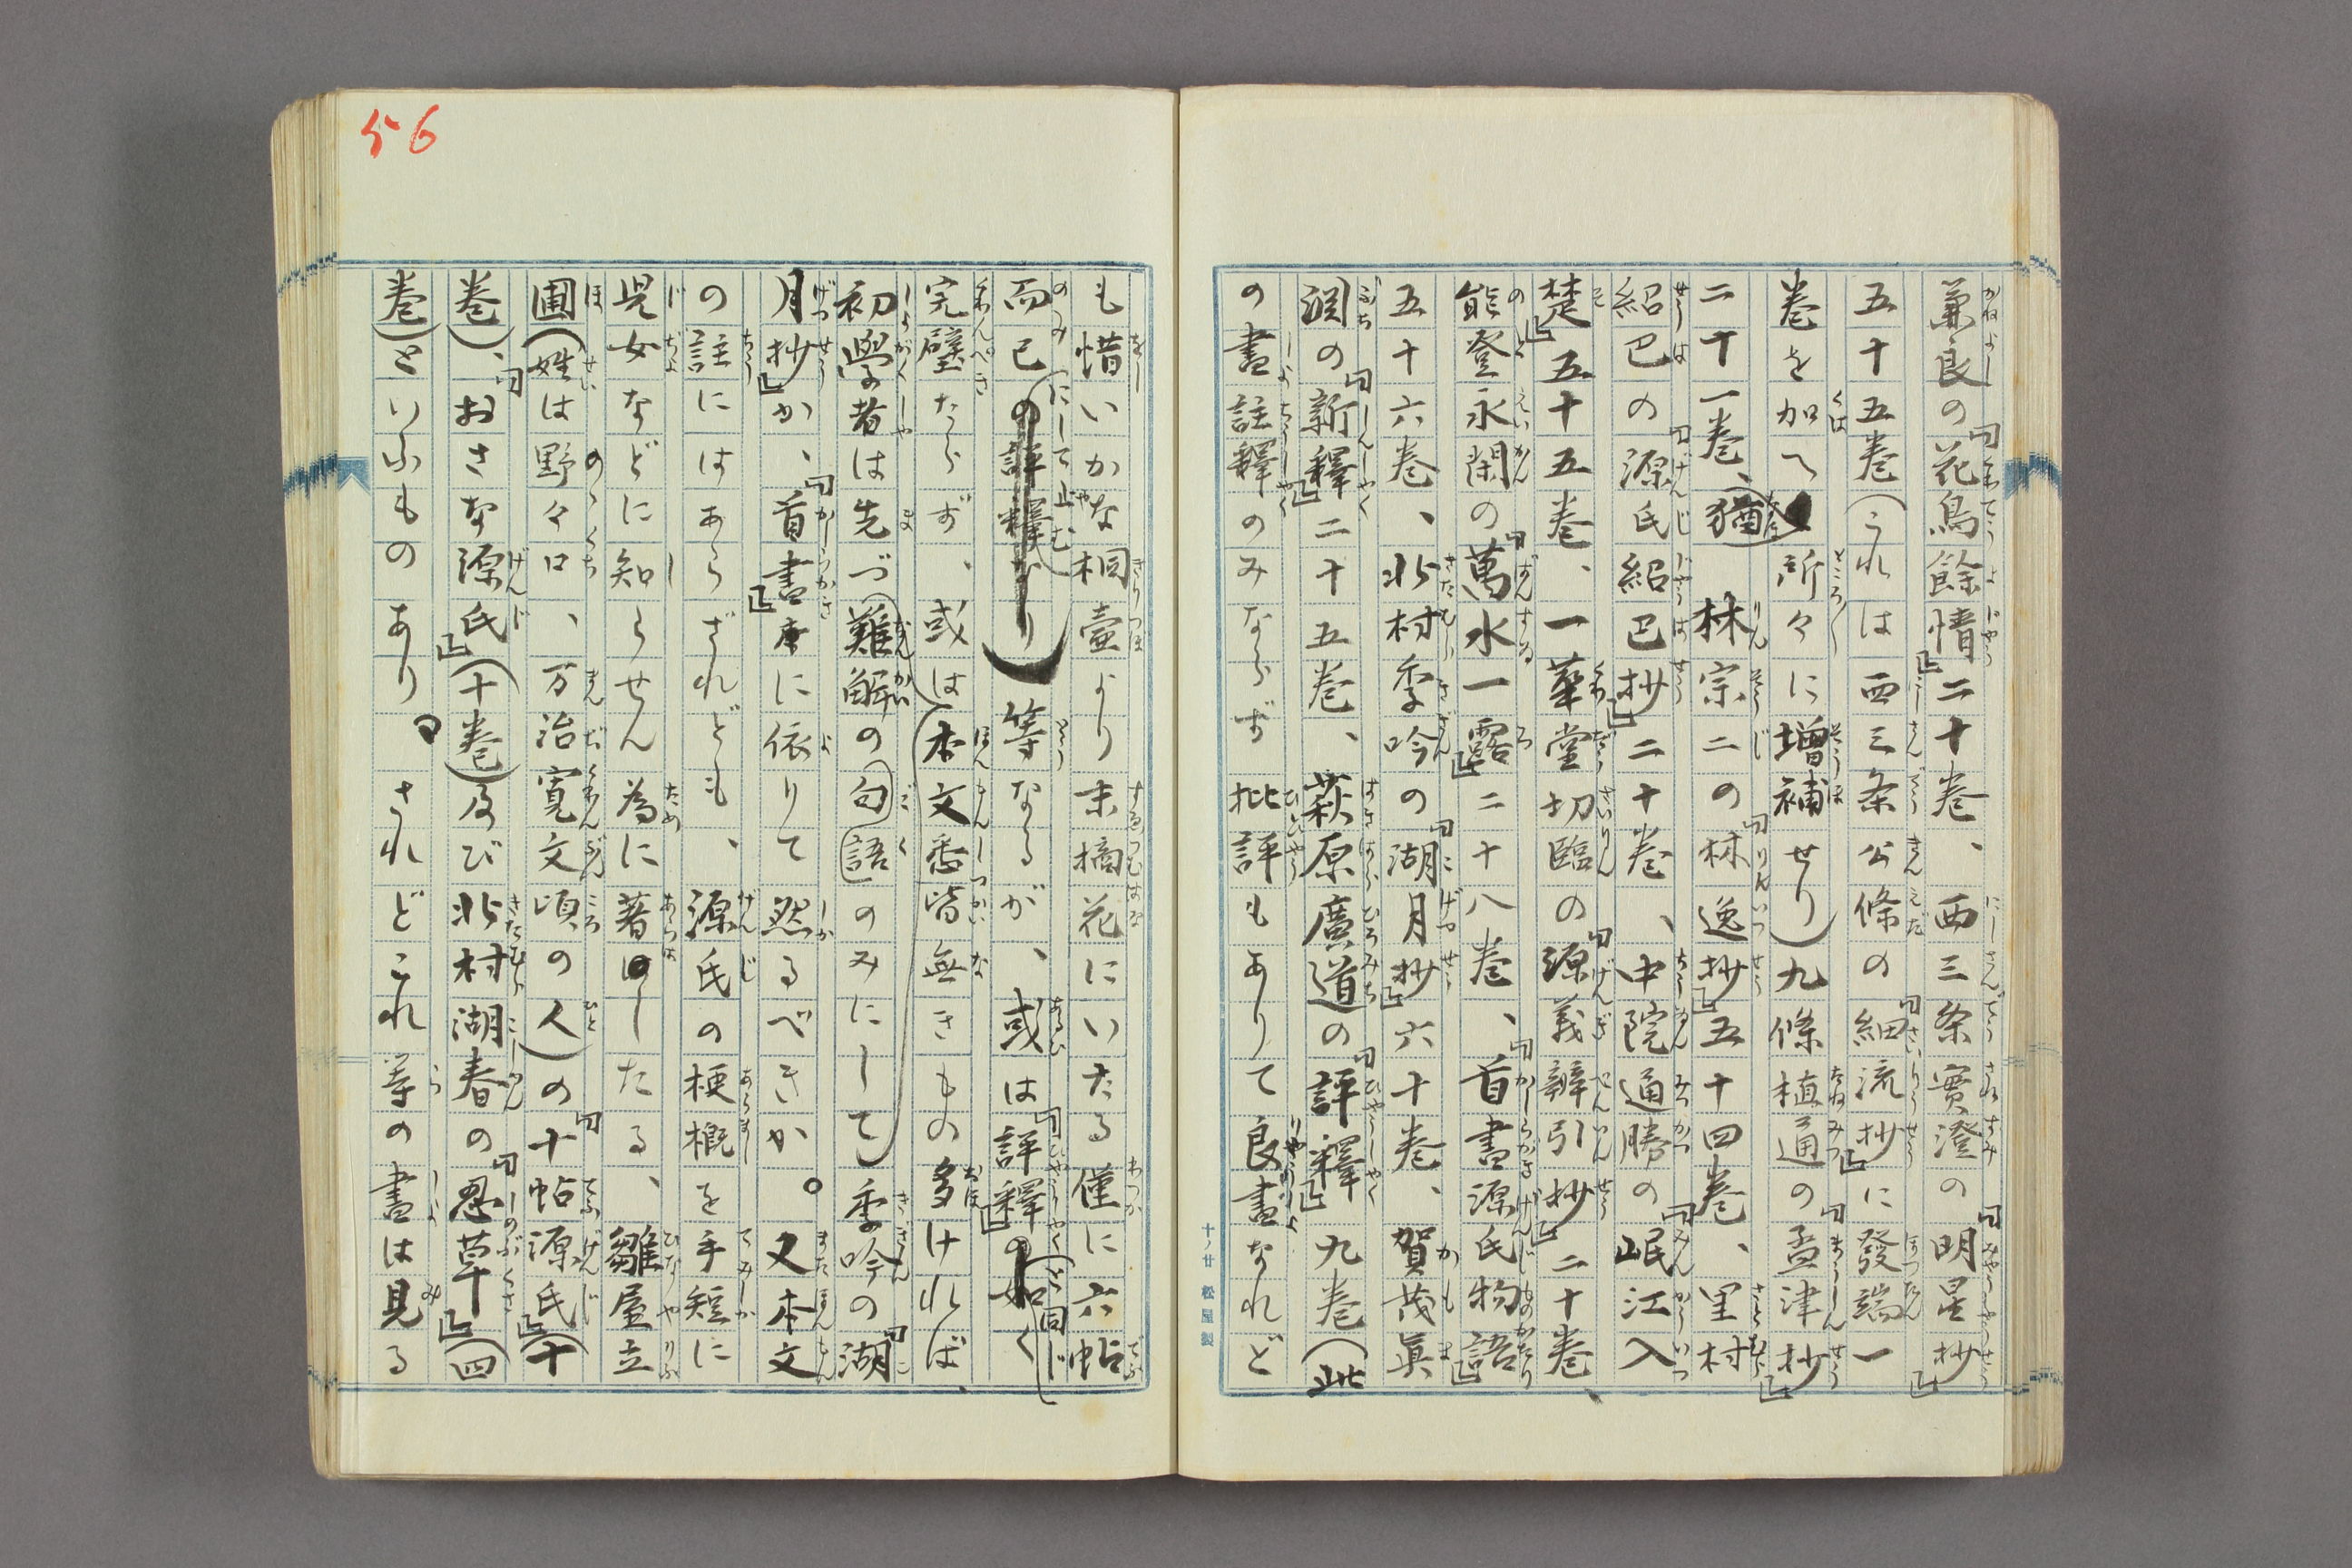 兼良の「花鳥餘情」二十巻、西三条實澄の「明星抄」
五十五巻(これは西三条公條の「細流抄」に發端一
巻を加へ、所々に増補せり)九條植通の「孟津抄」
二十一巻、(猶)林宗二の「林逸抄」五十四巻、里村
紹巴の「源氏紹巴抄」二十巻、中院通勝の「岷江入
楚」五十五巻、一華堂切臨の「源義辨引抄」二十巻、
能登永閑の「萬水一露」二十八巻、「首書源氏物語」
五十六巻、北村季吟の「湖月抄」六十巻、賀茂眞
淵の「新釋」二十五巻、萩原廣道の「評釋」九巻(此
の書註釋のみならず批評もありて良書なれど
も惜いかな桐壺より末摘花にいたる僅に六帖
而已にして止む)等なるが、或は「評釋」と同じく
完璧たらず、或は(本文悉皆無きもの多ければ、
初學者は先づ(難解の(句)語のみにして)季吟の「湖
月抄」か、「首書」に依りて然るべきか。又本文
の註にはあらざれども、源氏の梗概を手短に
児女などに知らせん為に著はしたる、雛屋立
圃(姓は野々口、万治寛文頃の人)の「十帖源氏」(十
巻)、「おさな源氏」(十巻)及び北村湖春の「忍草」(四
巻)といふものあり。されどこれ等の書は見る
56
十ノ廿 松屋製